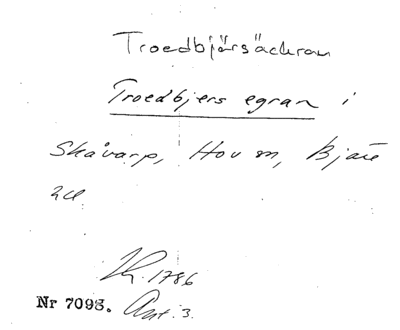 Troedbjärsäckran
Troedbjers egran i
Skåvarp, Hov sn, Bjäre
hd
1786
Nr 7095. Ant. 3.